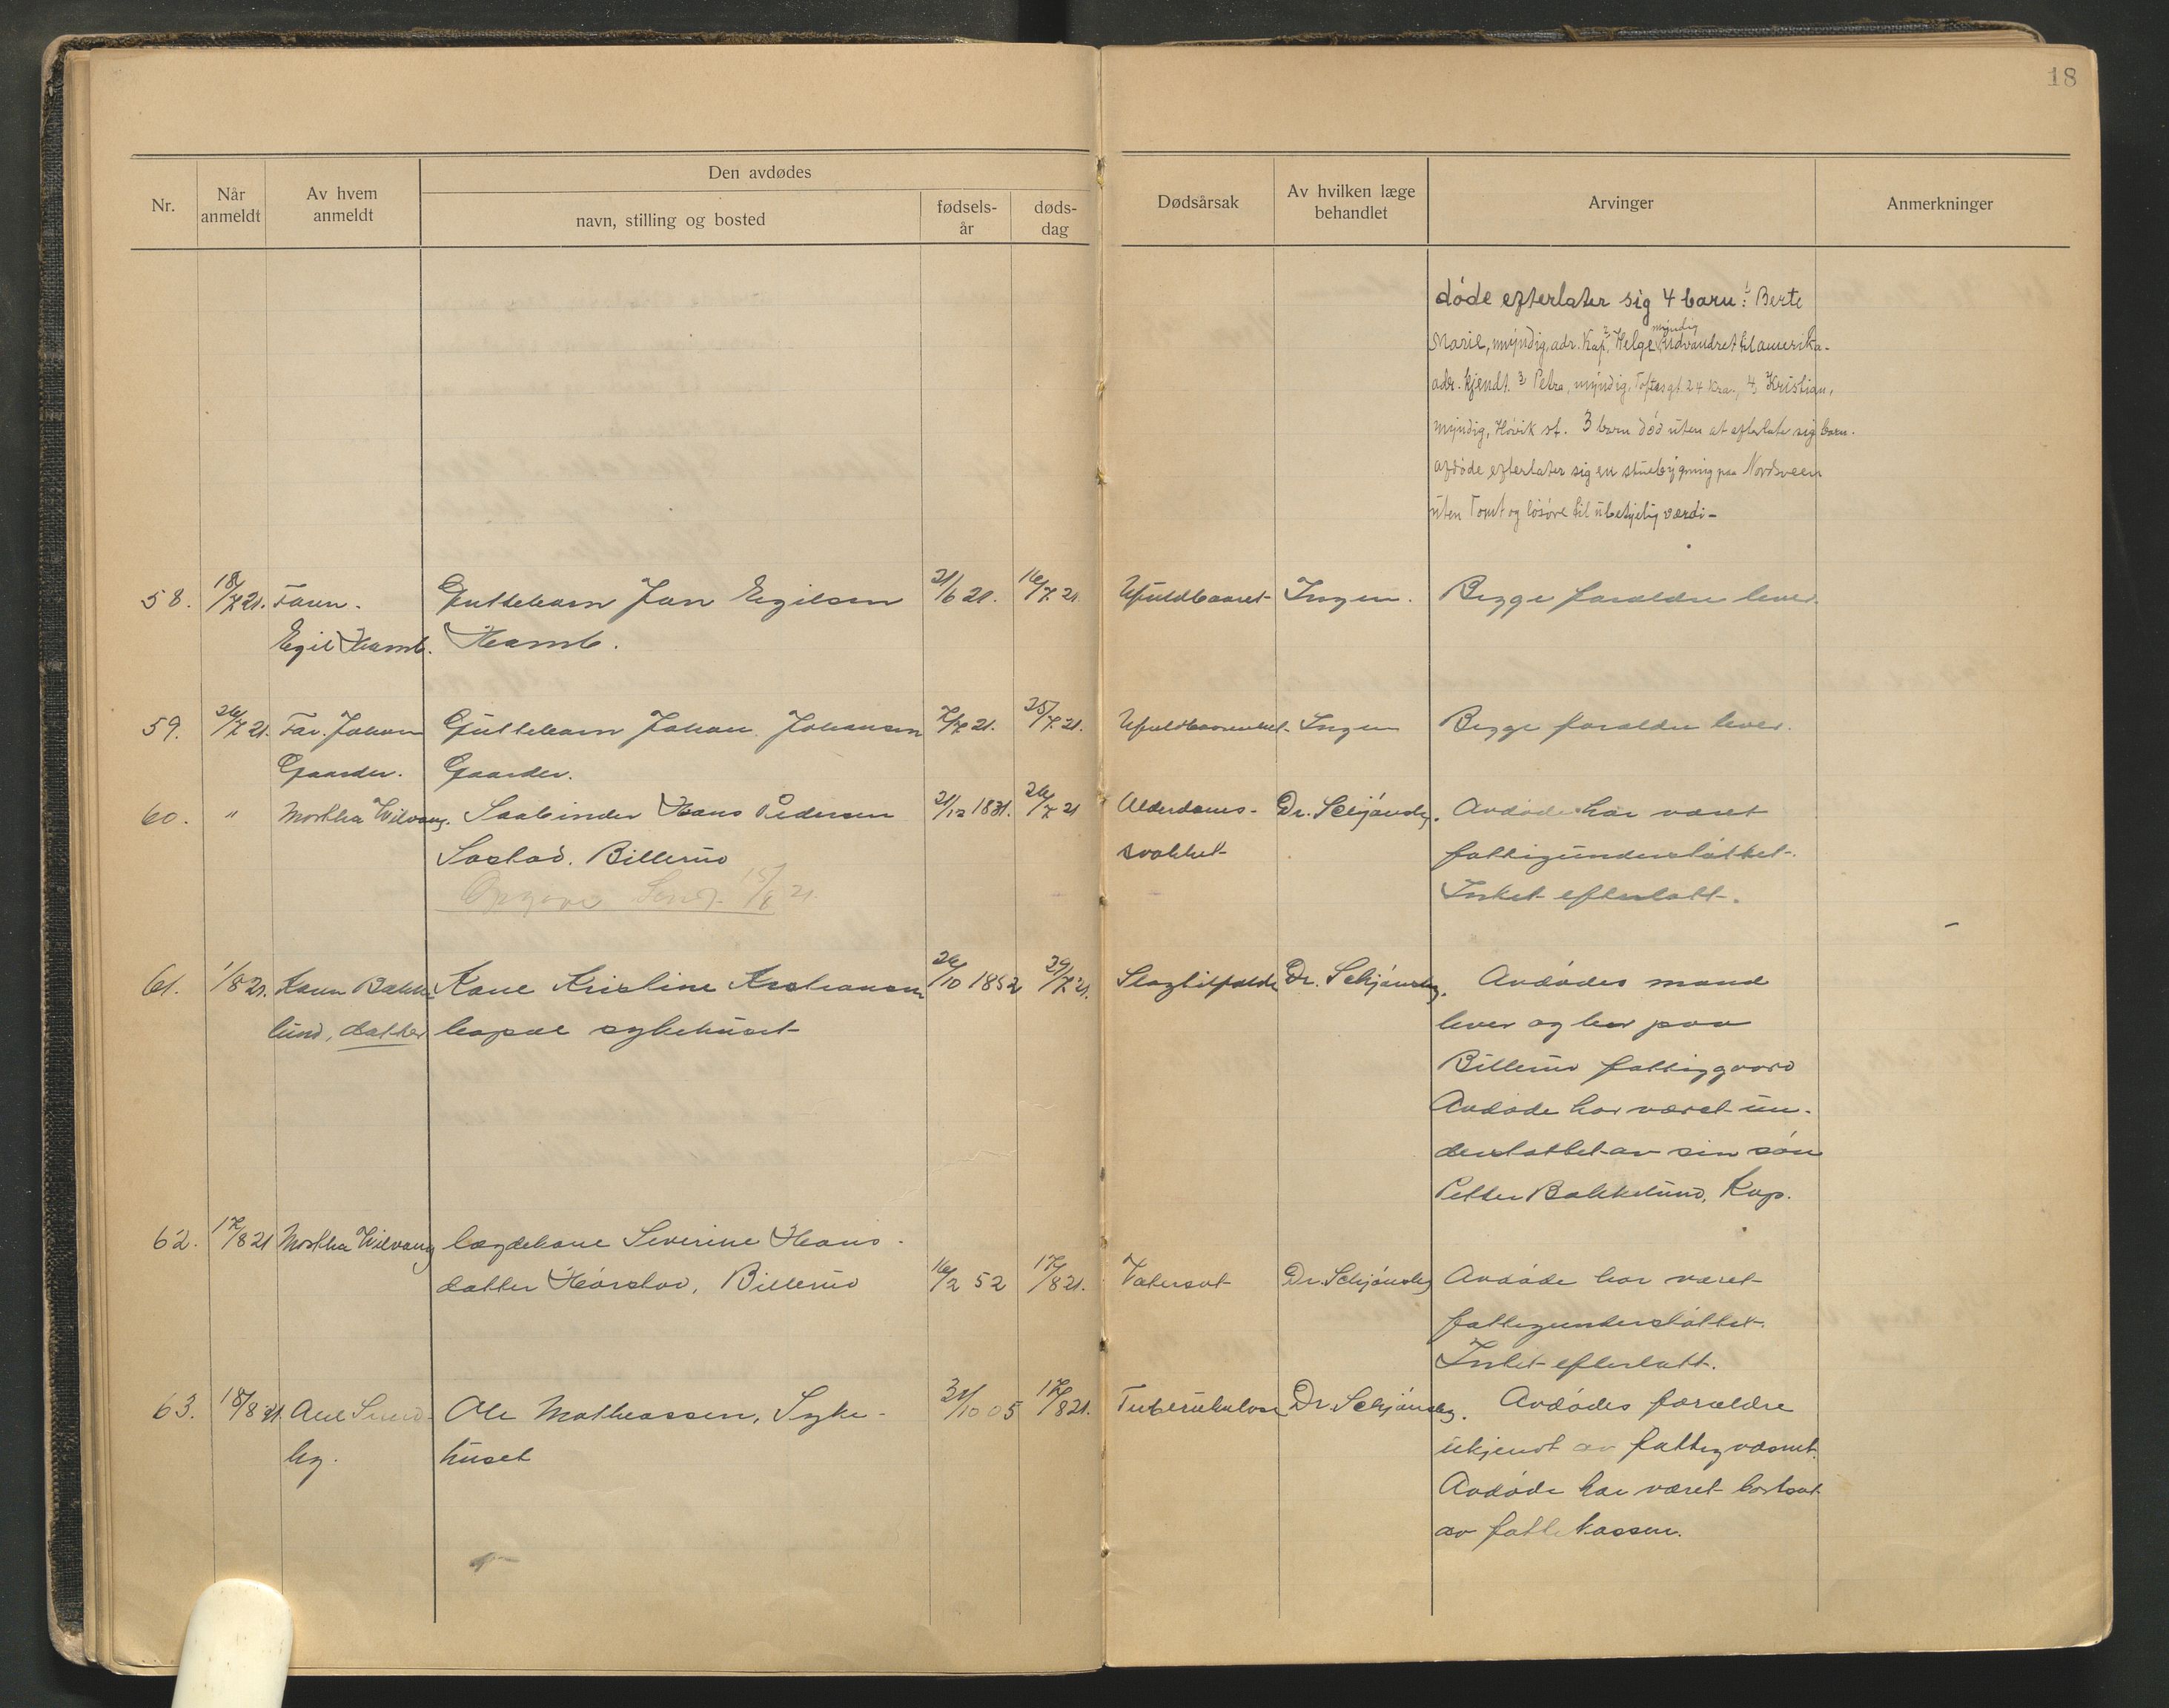 18
Nr.
Når anmeldt
Av hvem anmeldt
Den avdødes
navn, stilling og bosted
fødsels-
år
døds-
dag
Dødsårsak
Av hvilken læge
behandlet
Arvinger
Anmerkninger
døde efterlater sig 4 barn: 1 Berte
Marie, myndig, adr. Kap, 2 Helge, myndig udvandret til amerika -
adr. kjendt. 3 Petra, myndig, Toftesgt 24 Kra., 4 Kristian,
myndig, Høvik st. 3 barn død uten at efterlate sig barn.
afdøde efterlater sig en stuebygning paa Nordsveen
uten Tomt og løsøre til ubetydelig værdi -
58. 18/7 21. Faren. Guttebarn Jan Egilsen 21/6 21. 16/7 21 Ufuldbaaret Ingen. Begge forældre lever.
Egil Hamb. Hamb.
59. 26/7 21. Far. Johan Guttebarn Johan Johansen 7/7 21. 25/7 21. Ufuldbaarenhet Ingen Begge forældre lever.
Gaarder. Gaarder.
60. " Martha Wilvang. Saabinder Hans Pedersen 21/12 1831. 26/7 21 Alderdoms- Dr. Schjønsby. Avdøde har været
Sostad. Billerud svakhet fattigunderstøttet.
Opgave Send. 15/8 21. Intet efterlatt.
61. 1/8 21. Karen Bakke- Kone Kristine 26/10 1852 29/7 21. Slagtilfælde Dr. Schjønsby. Avdødes mand
lund, datter sykehuset lever og bor paa
Billerud fattiggaard
Avdøde har været un-
derstøttet av sin søn
Petter Bakkelund, Kap.
62. 17/8 21 Martha Wilvang Lægdekone Severine Hans-
datter Hørstad, Billerud 16/2 52 17/8 21. Vatersot Dr. Schjønsby Avdøde har været
fattigunderstøttet.
Intet efterlatt.
63. 18/8 21. Ole Mathiassen, Syke- 31/10 05 17/8 21. Tuberkulose Dr. Schjønsby. Avdødes forældre
huset ukjendt av fattigvæsnet.
Avdøde har været bortsat
av fattikassen.